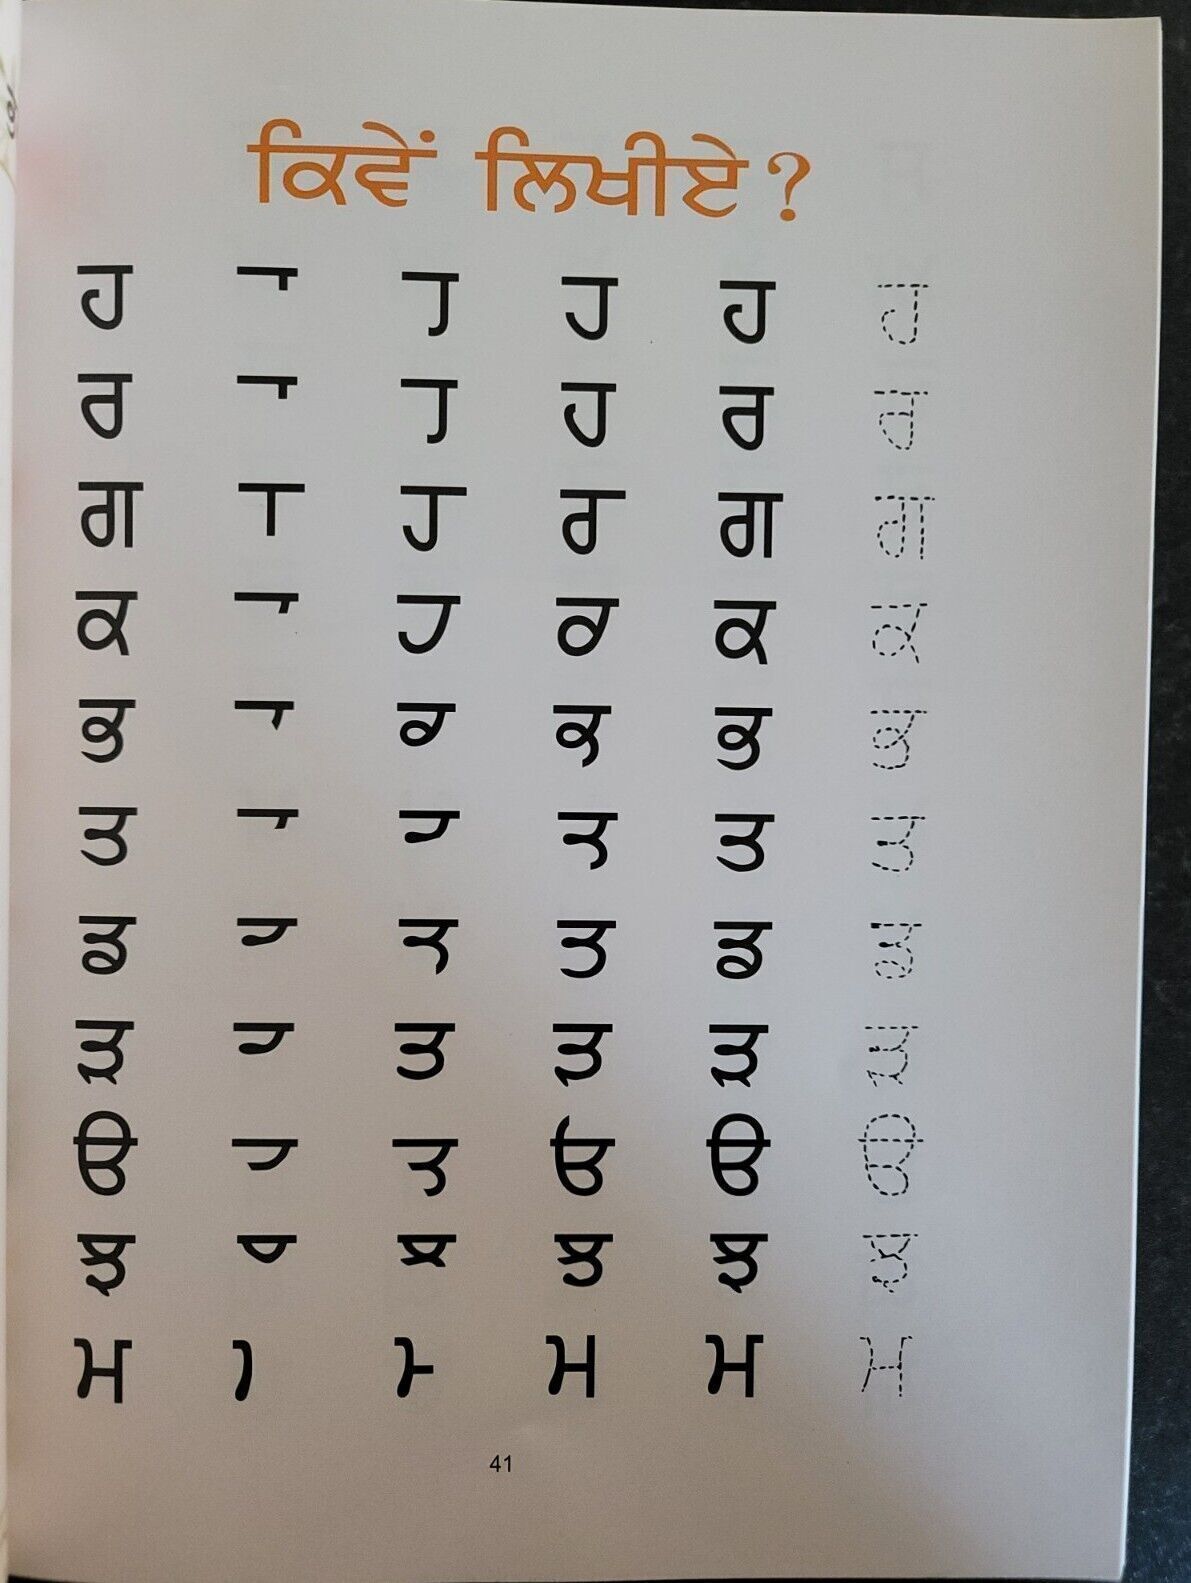 ਕਿਵੇਂ ਲਿਖੀਏ ?
ਹ ਹ ਹ ਹ
ਰ ਹ ਰ ਰ
ਗ ਹ ਰ ਗ ਗ
ਕ ਹ ਕ ਕ
ਭ ਕ ਭ ਭ
ਤ ਤ ਤ
ਡ ਤ ਡ ਡ
ੜ ਤ ੜ ੜ
ੳ ੳ ੳ
ਝ ਝ ਝ
ਮ ਮ ਮ ਮ
41